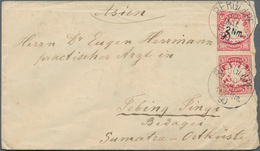 (Asien)
Herrn Dr Eugen Herrmann
practischer Arzt in
Tebing Tingi
Bedagei
Sumatra-Ostküste